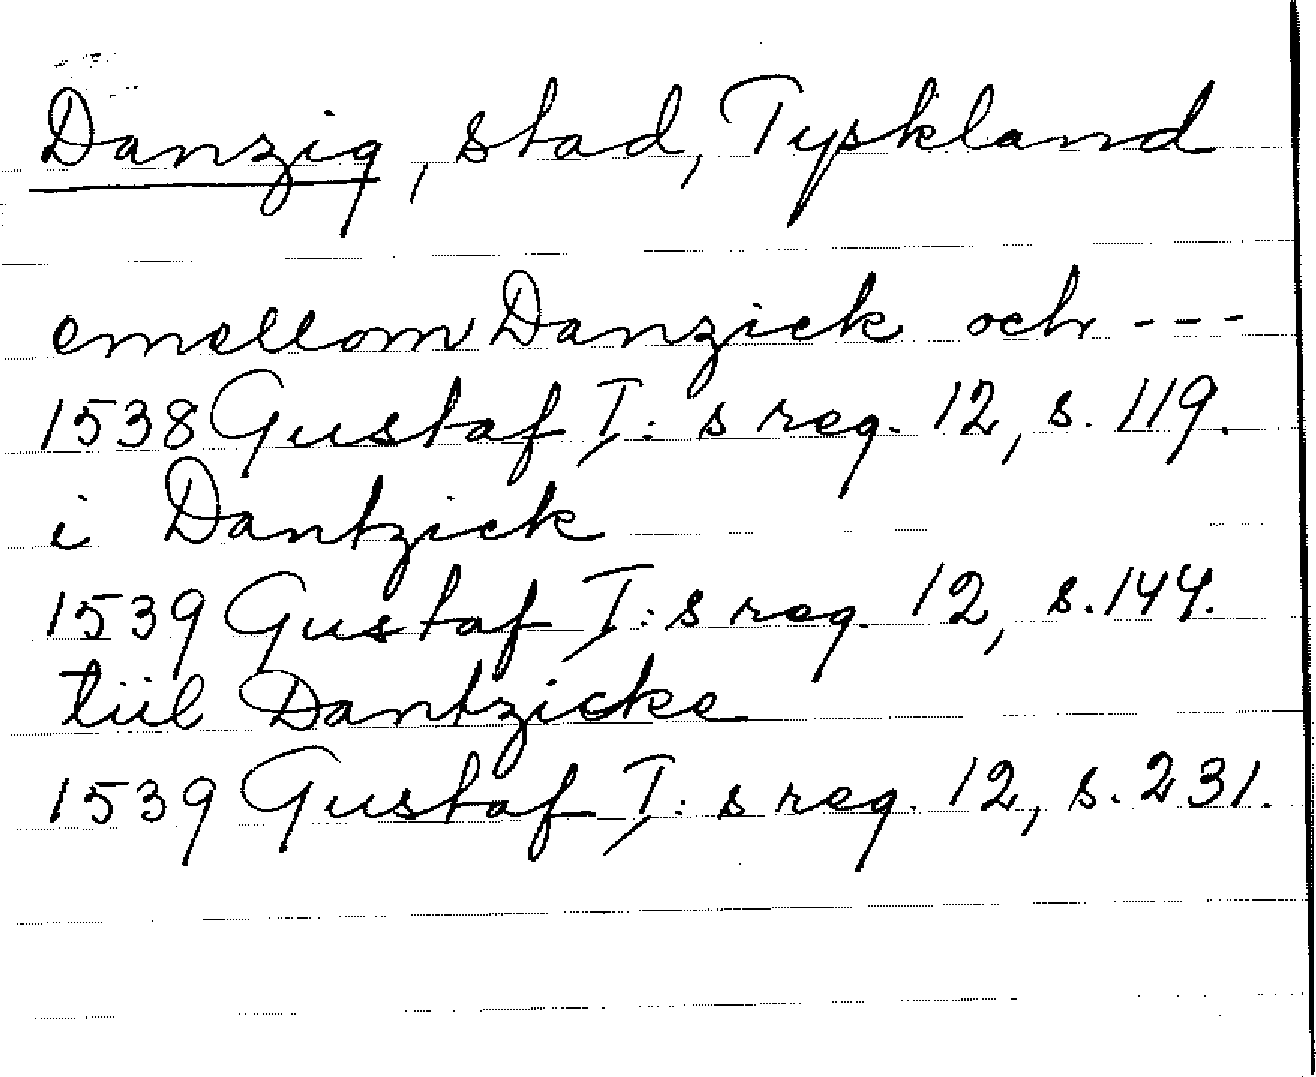 Danzig, stad, Tyskland
emellom Danzick och ---
1538 Gustaf I:s reg. 12, s. 119.
i Dantzick
1539 Gustaf I:s reg. 12, s. 144.
tiil Dantzicke
1539 Gustaf I:s reg. 12, s. 231.